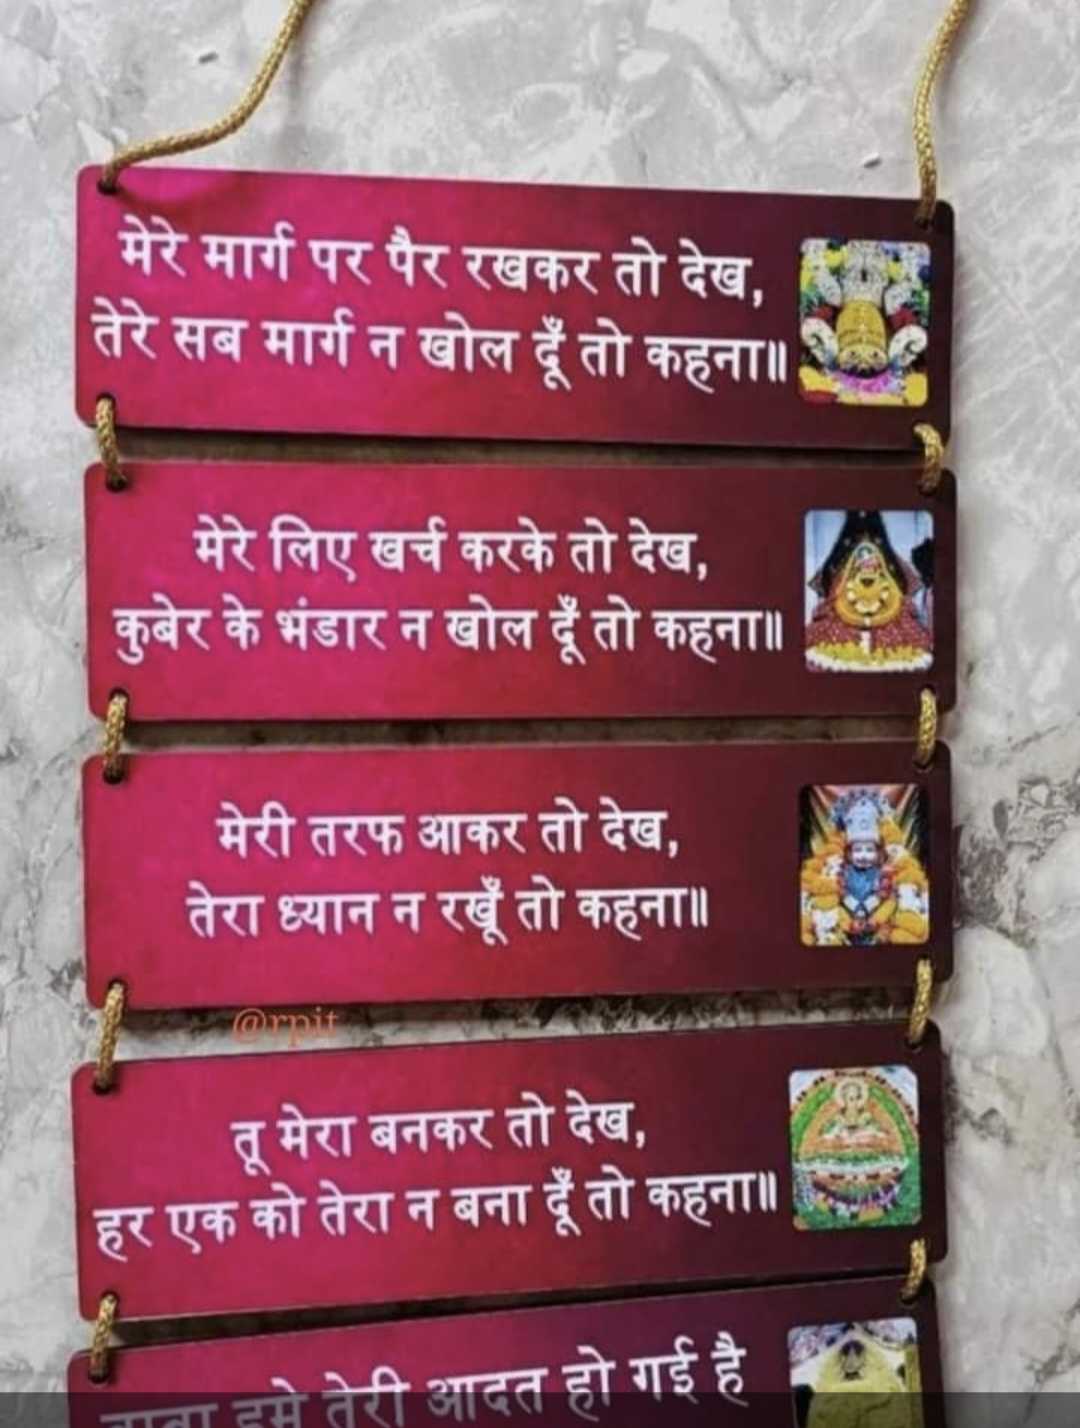 मेरे मार्ग पर पैर रखकर तो देख,
तेरे सब मार्ग न खोल दूँ तो कहना॥
मेरे लिए खर्च करके तो देख,
कुबेर के भंडार न खोल दूँ तो कहना॥
मेरी तरफ आकर तो देख,
तेरा ध्यान न रखूँ तो कहना॥
@rpit
तू मेरा बनकर तो देख,
हर एक को तेरा न बना दूँ तो कहना॥
हमे तेरी आदत हो गई है